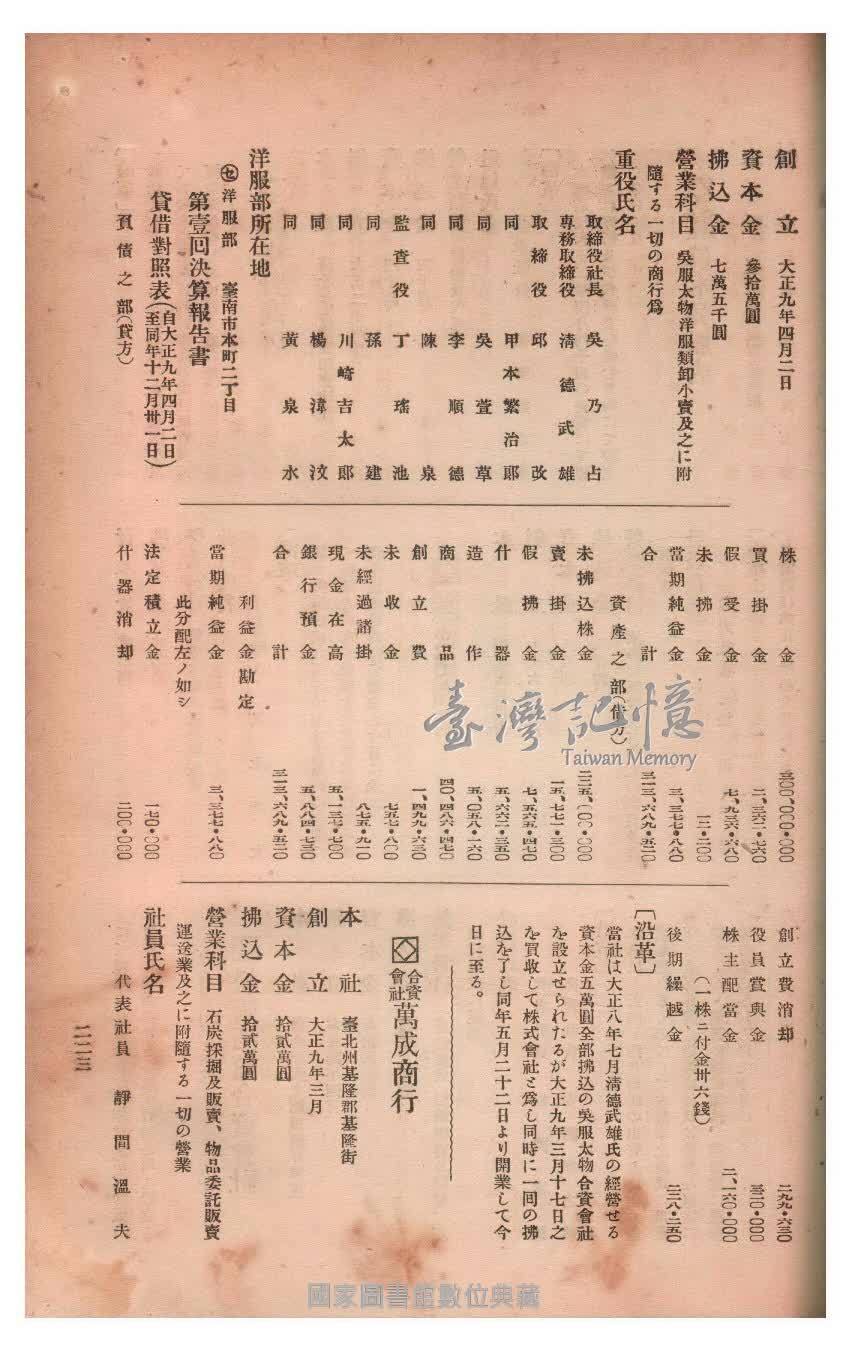 創立　大正九年四月二日
資本金　參拾萬圓
拂込金　七萬五千圓
營業科目　吳服太物洋服類卸小賣及之に附
隨する一切の商行爲
重役氏名
取締役社長　吳乃占
專務取締役　清德武雄
取締役　邱　改
同　甲本繁治郎
同　吳萱草
同　李順德
同　陳　泉
監査役　丁瑤池
同　孫　建
同　川崎吉太郎
同　楊漳汶
同　黃泉水
洋服部所在地
㊆洋服部　臺南市本町二丁目
第壹回決算報告書
貸借對照表（自大正九年四月二日
至同年十二月卅一日）
負債之部（貸方）
株金　三〇〇、〇〇〇・〇〇〇
買掛金　二、三六二・七六〇
假受金　七、九三六・六八〇
未拂金　一二・二〇〇
當期純益金　三、三七七・八八〇
合計　三一三、六八九・五二〇
資産之部（借方）
未拂込株金　二二五、〇〇〇・〇〇〇
賣掛金　一五、七七一・三〇〇
假拂金　七、五六五・四七〇
什器　五、六六二・三五〇
造作　五、〇五八・一六〇
商品　四〇、四八六・四七〇
創立費　一、四九九・六三〇
未收金　七五七・八〇〇
未經過諸掛　八七五・九一〇
現金在高　五、一三七・七〇〇
銀行預金　五、八八四・七三〇
合計　三一三、六八九・五二〇
利益金勘定
當期純益金　三、三七七・八八〇
此分配左ノ如シ
法定積立金　一七〇・〇〇〇
什器消却　二〇〇・〇〇〇
創立費消却　二九九・六三〇
役員賞與金　三一〇・〇〇〇
株主配當金　二、一六〇・〇〇〇
（一株ニ付金卅六錢）
後期繰越金　二三八・二五〇
〔沿革〕
當社は大正八年七月清德武雄氏の經營せる
資本金五萬圓全部拂込の吳服太物合資會社
を設立せられたるが大正九年三月十七日之
を買收して株式會社と爲し同時に一回の拂
込を了し同年五月二十二日より開業して今
日に至る。
合資會社　萬成商行
本社　臺北州基隆郡基隆街
創立　大正九年三月
資本金　拾貳萬圓
拂込金　拾貳萬圓
營業科目　石炭採掘及販賣、物品委託販賣
運送業及之に附隨する一切の營業
社員氏名
代表社員　靜間溫夫
二二三
臺灣記憶
Taiwan Memory
國家圖書館數位典藏